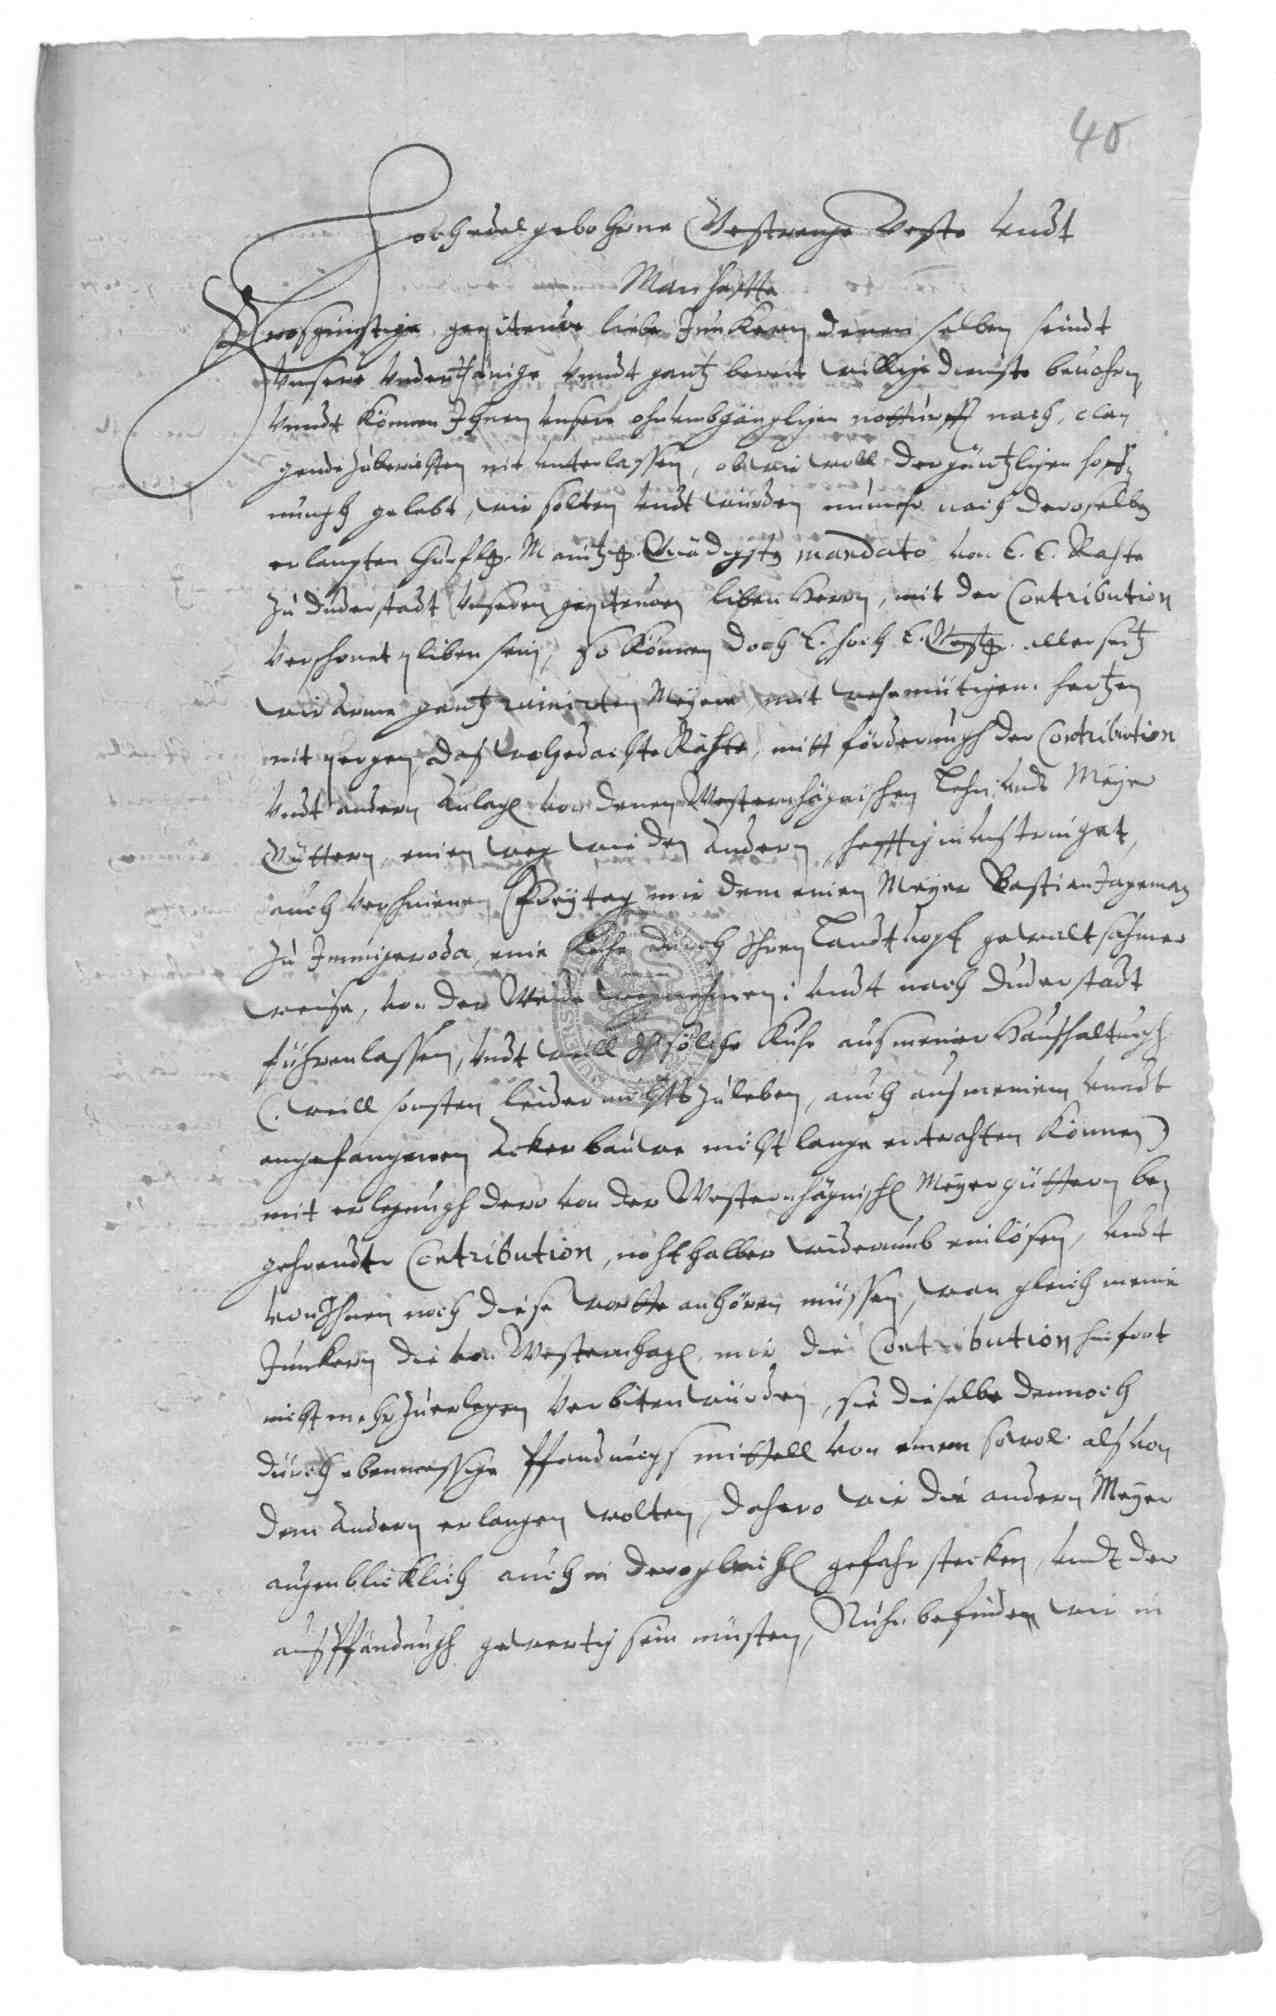 40
Hochedelgebohrne Gestrenge Veste undt
Manhaffte
Grosgünstige gepitende liebe Junkern, denenselben seindt
Unsere underthänige undt gantz bereit willige dienste bevohrn,
undt können Ihnen unser ohnumbgänglichen notturfft nach, clan
gende zuberichten nit unterlassen, ob wir woll der gäntzlichen hoff-
nungh gelebt, wir solten undt würden numehr nach deroselben
erlangten Churfl. Maintz. Gnädigste mandato von E. E. Rahte
zu Duderstadt unseren gepitenden lieben Herrn, mit der Contribution
verschonet plieben sein, so können doch E. Hoch E. Gestr. allerseitz
wir arme gantz ruinirten Meyere, mit wehemütigen hertzen
nit pergen, das wolgedachte Rähte, mitt förderungh der Contribution
undt andern Anlagen von denen Westernhagischen Lehn undt Meyer
Güttern einen weg wie den andern, hefftig in uns tringet,
auch verschienen Freytag mir dem einen Meyer Bastian Jageman
zu Immigeroda, eine Kuhe durch Ihren Landtknecht gewaltsahmer
weise, von der Weide wegnehmen, undt nach Duderstadt
führen lassen, undt weill Ich solche Kuhe aus meiner Haushaltungh
(weill sonsten leider nichts zu leben, auch aus meinem undt
angefangenen Ackerbauwe nicht lange entrahten können)
mit erlegungh dero von der Westernhagischen Meyergüttern be-
gehrendte Contribution, nohthalber widerumb einlösen, undt
von Ihnen noch diese worte anhören müssen, wan gleich meine
Junkern die von Westernhagen mir die Contribution hinfort
nicht mehr zuerlegen verbieten würden, sie dieselbe dennoch
durch ebenmessige Pfandungs mittell von einem sowol als von
dem Andern erlangen wolten, dahero wir die andern Meyer
augenblicklich auch in dergleichen gefahr stecken, undt der
auspfändungh gewertig sein müsten, Nuhn befinden wir in